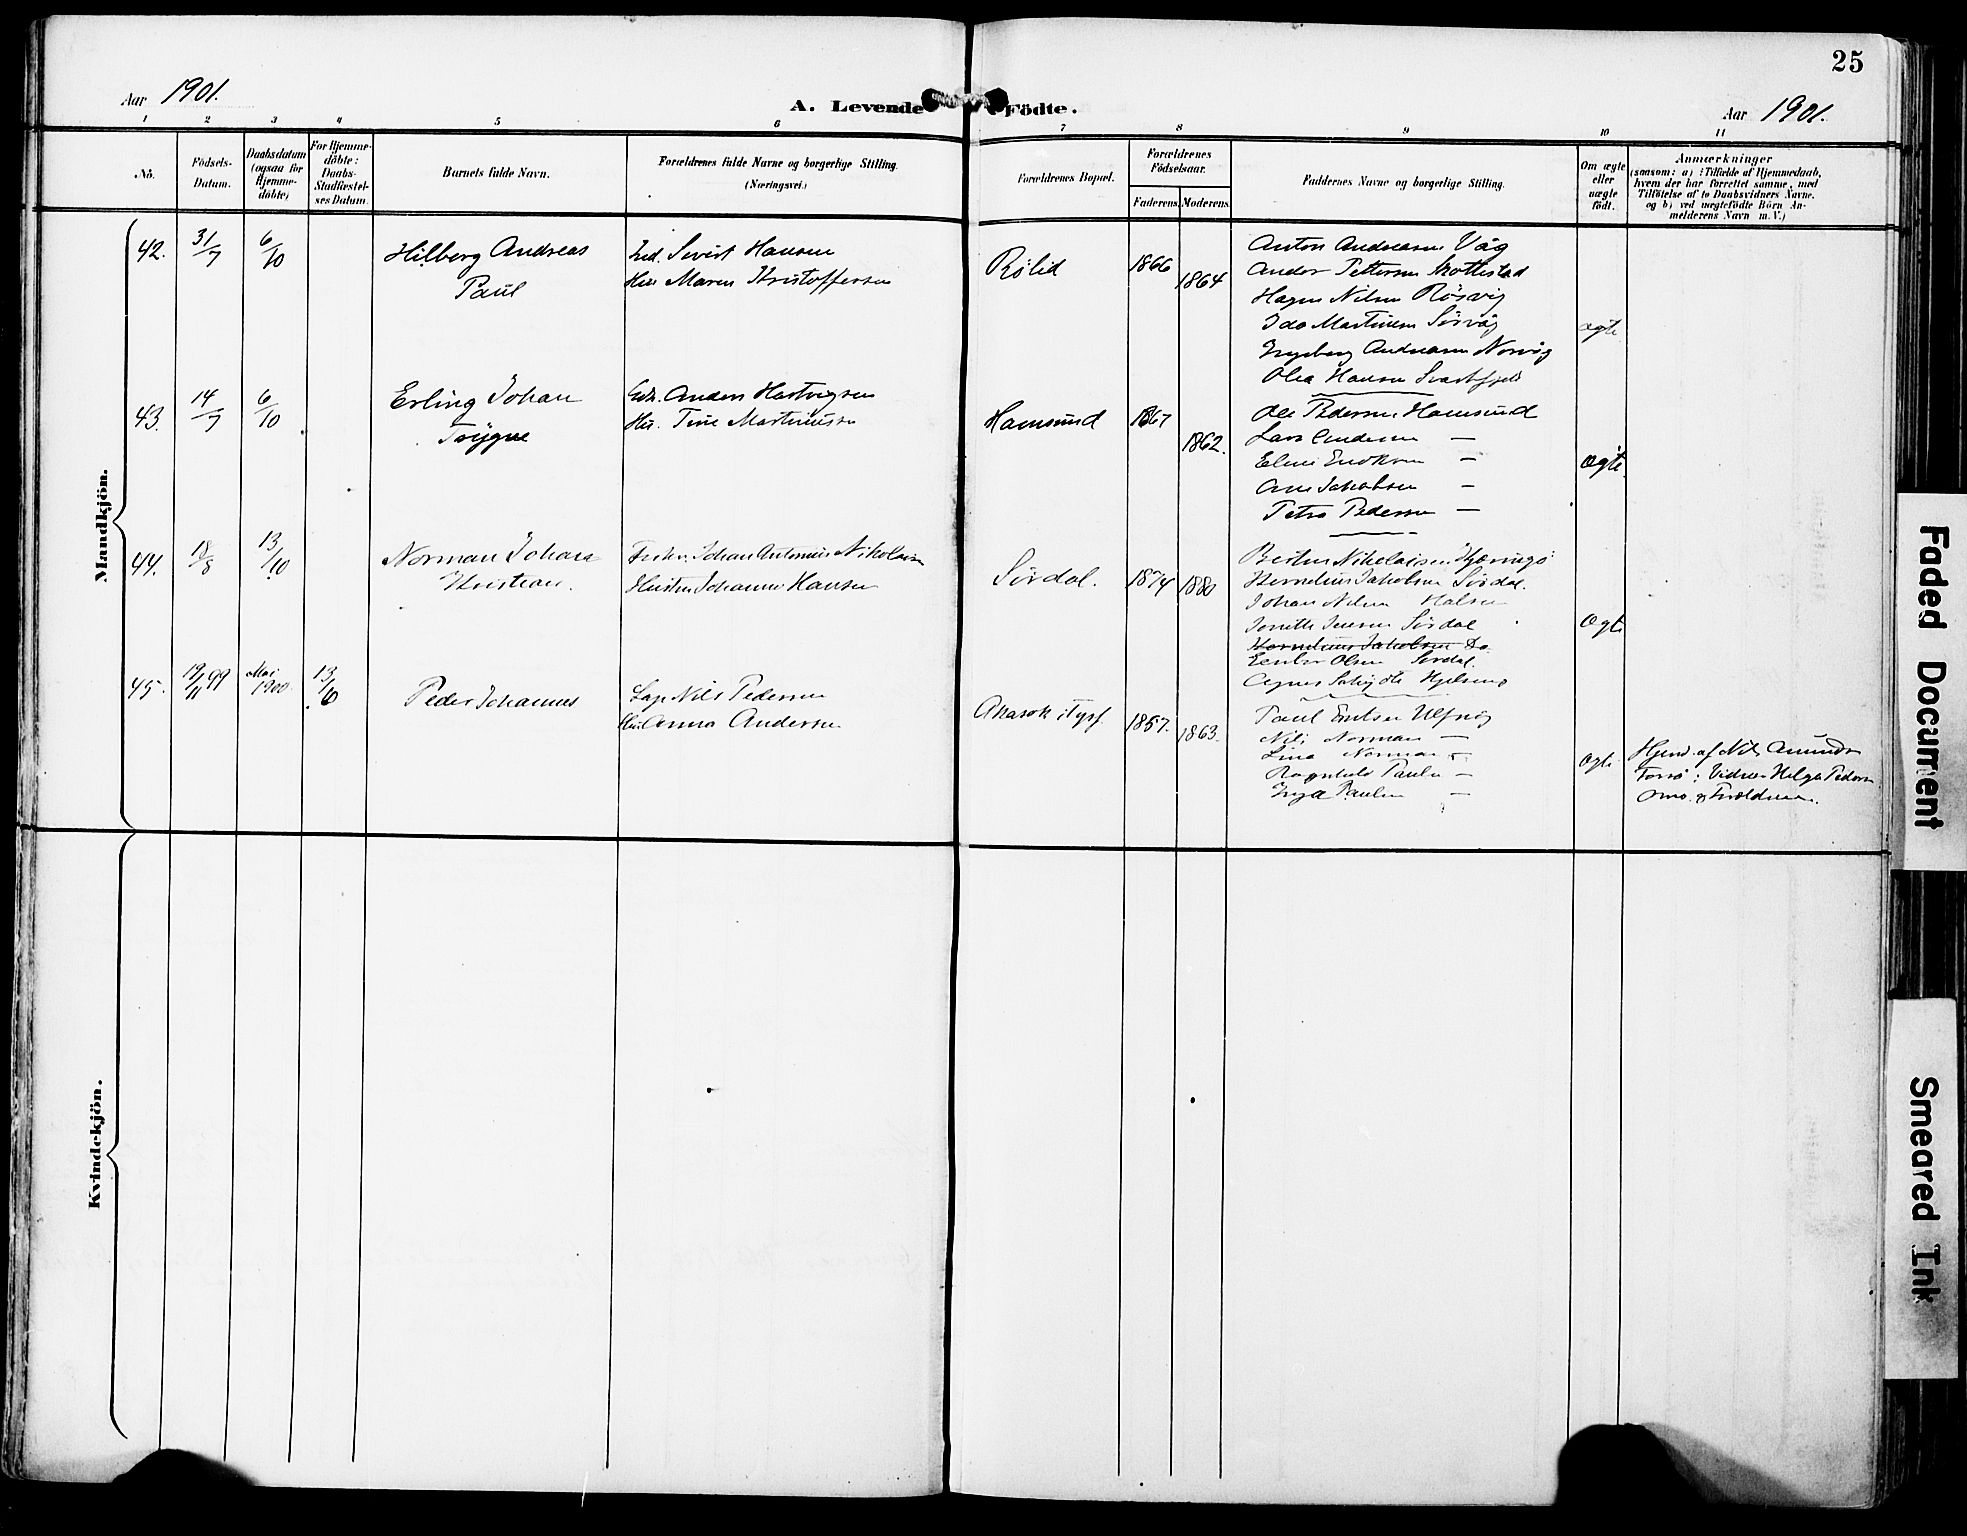 25
Aar 1901.
A. Levende Födte.
Aar 1901.
1 2 3 4 5 6 7 8 9 10 11
No.
Födsels-Datum.
Daabsdatum (ogsaa for Hjemme-döbte)
For Hjemme-döbte: Daabs-Stadfæstel-ses Datum.
Barnets fulde Navn.
Forældrenes fulde Navne og borgerlige Stilling.
(Næringsvei.)
Forældrenes Bopæl.
Forældrenes Födselsaar.
Faderens Moderens
Faddernes Navne og borgerlige Stilling.
Om ægte eller uægte födt.
Anmærkninger
(saasom: a) i Tilfælde af Hjemmedaab,
hvem der har forrettet samme, med
Tilföielse af to Daabsvidners Navne,
og b) ved uægtefödte Börn An-
melderens Navn m. V.)
Mandkjön.
42. 31/7 6/10 Hilberg Andreas
Paul
Sivert Hansen
Maren Kristoffersen
Rölid 1866 1864
Anton Andreasen Våg
Ander Pettersen
Hagen Nilsen Rösvig
Ida Martinsen Sörvåg
Ingeberg Andreasen
Olea Hansen
ægte
43. 14/7 6/10 Erling Johan
Trygve
Anders Hartvigsen
Hu. Tine Martinussen
Hamsund 1867 1862.
Ole Pedersen Hamsund
Lars Andersen —
Eline Eriksen —
Ane Jakobsen —
Petra Pedersen —
Ægte
44. 18/8 13/10 Norman Johan
Kristian.
Johan Antonius Nikolaisen
Hustru Johanne Hansen
Sördal. 1874 1880
Nikolaisen
Kornelius Jakobsen Sördal.
Johan Nilsen
Jensen Sördal
Kornelius Jakobsen Do
Olsen Sördal.
Agnes
Ægte
45. 19/11 99 Mai 1900 13/10 Peder Johannes
Lap Nils Pedersen
Hu. Anna Andersen
i Tysf. 1857. 1863.
Paul
Nils Norman —
Lina Norman —
Ragnhild Paulsen —
Inga Paulsen —
Ægte
Hjemd. af Nils
Helge Pedersen
Kvindekjön.
Faded Document
Smeared Ink